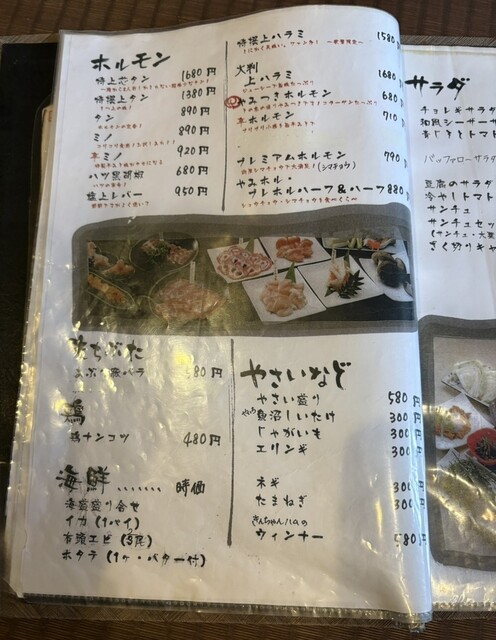 ホルモン
特上芯タン 1680円
特撰上タン 1380円
タン 890円
ミノ 890円
辛ミノ 920円
ハツ黒胡椒 680円
塩上レバー 950円
特撰上ハラミ 1580
大判
上ハラミ 1680
やみつきホルモン 680円
辛ホルモン 710円
プレミアムホルモン(シマチョウ) 790
やみホル・
プレホルハーフ&ハーフ 880円
もちぶた
豚バラ 580円
鶏
鶏ナンコツ 480円
海鮮……時価
海鮮盛り合せ
イカ(1パイ)
有頭エビ(3尾)
ホタテ(1ケ・バター付)
やさいなど
やさい盛り 580円
魚沼しいたけ 300円
じゃがいも 300
エリンギ 300
ネギ 300
たまねぎ 300
きんちゃんハムの
ウィンナー 580円
サラダ
チョレギサラダ
和風シーザーサ
バッファローサラダ
豆腐のサラダ
冷やしトマト
サンチュ
サンチュセッ
(サンチュ・大葉
ざく切りキャ